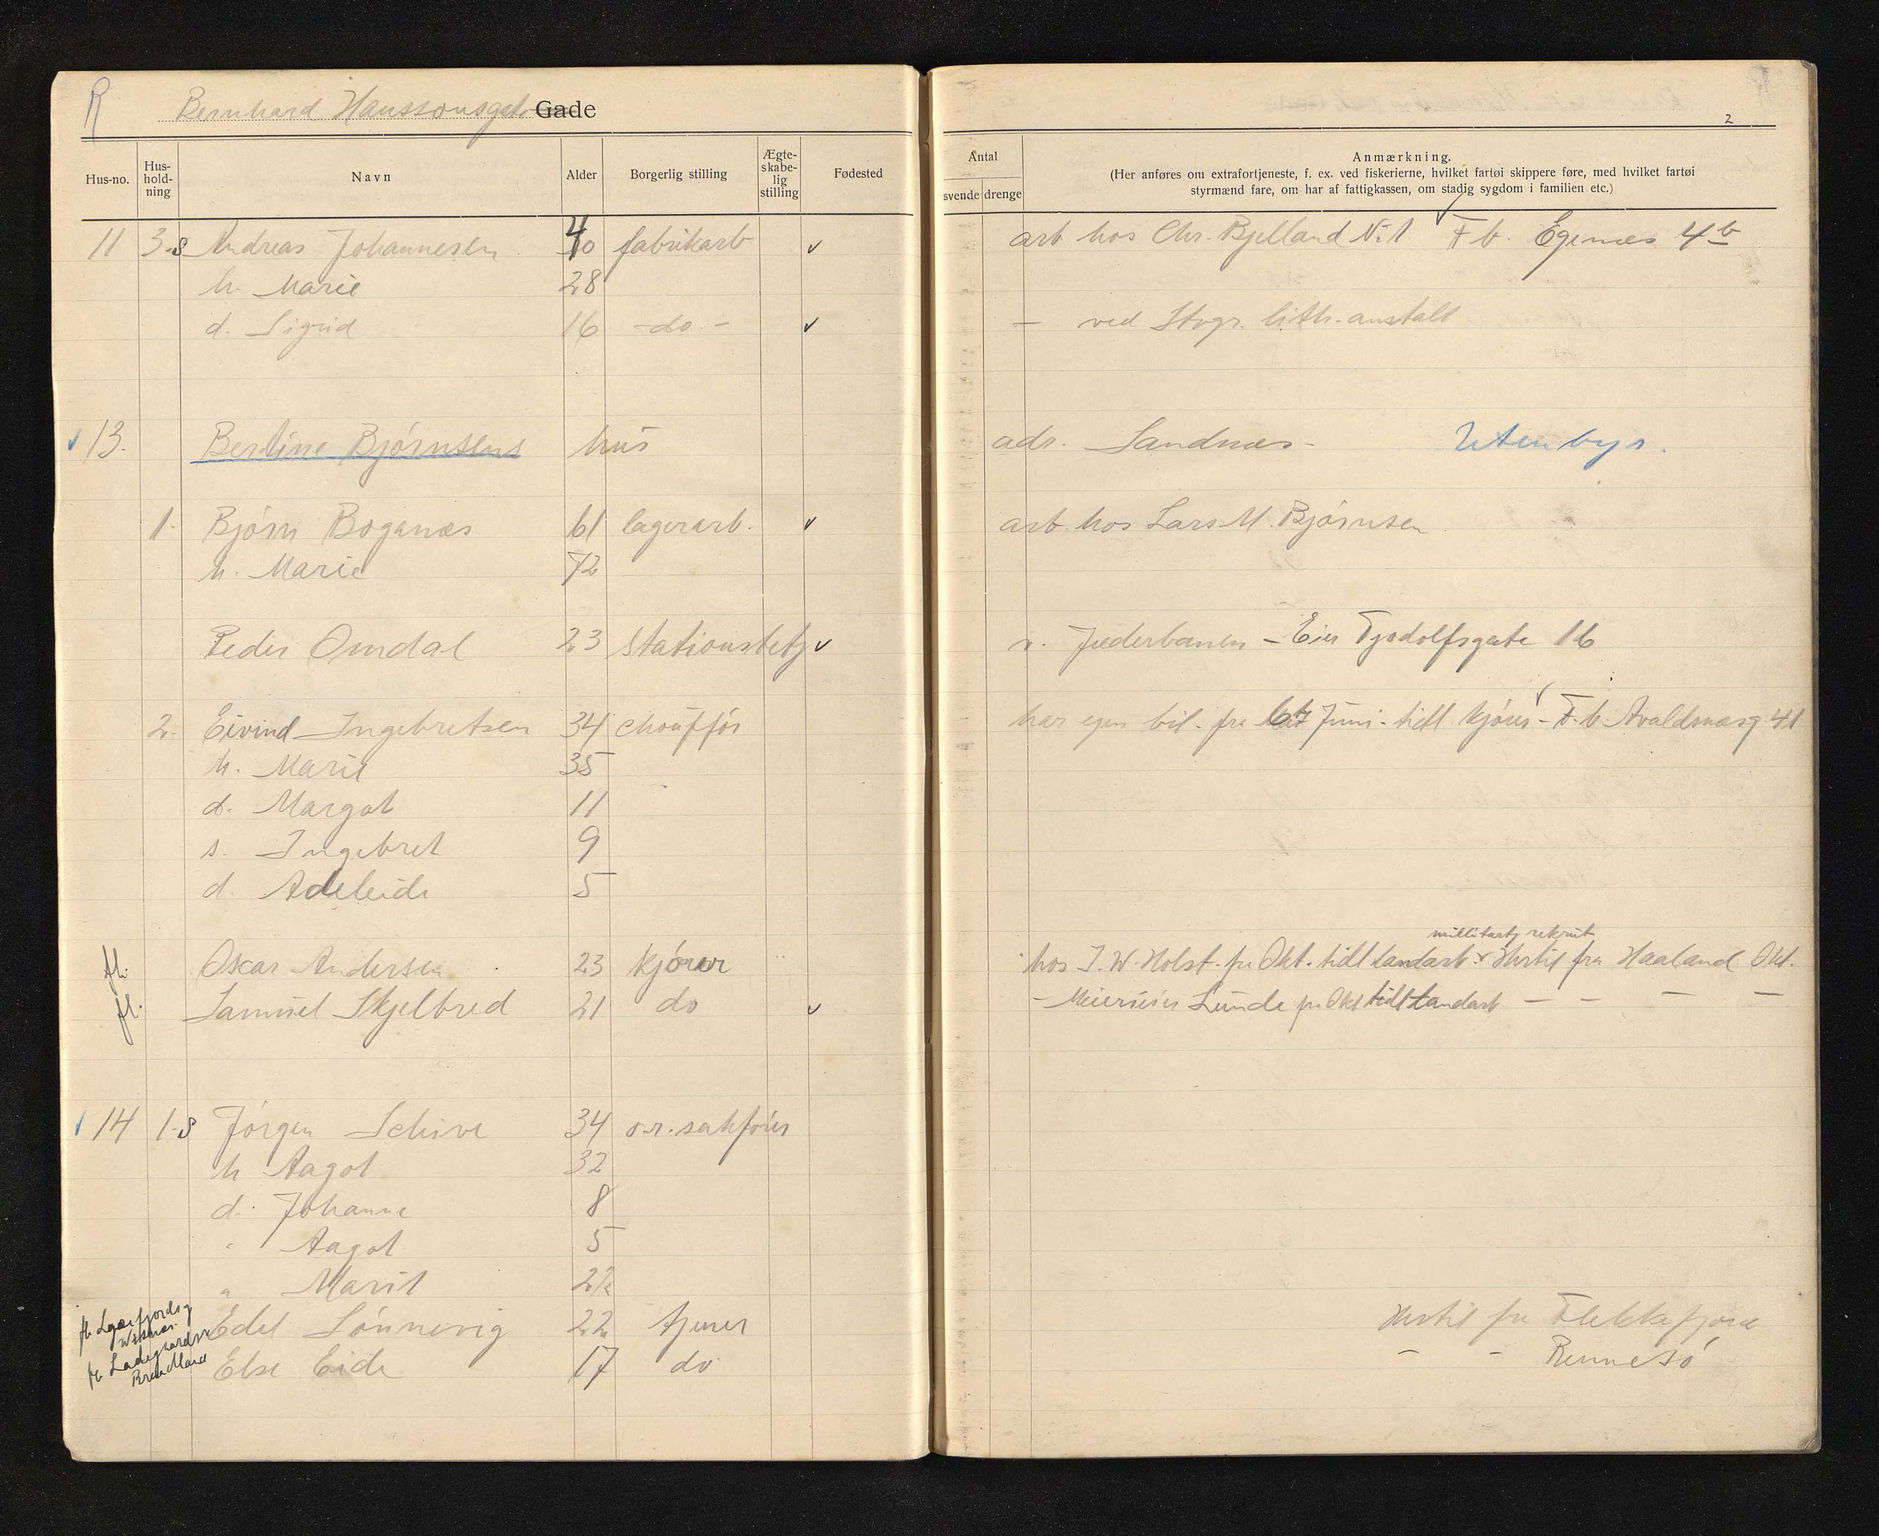 R Bernhard Hanssonsgate Gade
2
Hus-no. Hus-hold-ning Navn Alder Borgerlig stilling Ægte-skabe-lig stilling Fødested
Antal svende drenge Anmærkning.
(Her anføres om extrafortjeneste, f. ex. ved fiskerierne, hvilket fartøi skippere føre, med hvilket fartøi
styrmænd fare, om har af fattigkassen, om stadig sygdom i familien etc.)
11 3-S Andreas Johannesen 40 fabrikarb ✓ arb hos Chr. Bjelland No 1 F b. Egenæs 4b
h. Marie 28
d. Sigrid 16 -do- ✓ - ved Stvgr. lith. anstalt
✓ 13. Bertine Bjørnsens hus adr. Sandnæs- Utenbys.
1. Bjørn Boganæs 61 lagerarb. ✓ arb. hos Lars M. Bjørnsen
h. Marie 72
Peder Omdal 23 Stationsbetj ✓ v. Jæderbanen - Eier Tjodolfsgate 16
2. Eivind Ingebretsen 34 chouffør har egen bil. fra Juni - tidl kjører - F. b Avaldsnæsg 41
h. Marie 35
d. Margot 11
s. Ingebret 9
d. Adeleide 5
militærtj rekrut
fl. Oscar Andersen 23 kjører hos I. W. Holst. fra Okt. tidl landarb ✓ Hertil fra Haaland Okt.
fl. Samuel Skjelbred 21 do ✓ - Meierieier Lunde fra Okt tidl landarb - - - -
✓ 14 1-S Jørgen Schive 34 o.r. sakfører
h Aagot 32
d. Johanne 8
" Aagot 5
" Marit 2½
fl. Edel Sønnevig 22 tjener Hertil fra Flekkefjord
fl. Ladegaardsv Else Eide 17 do - - Rennesø